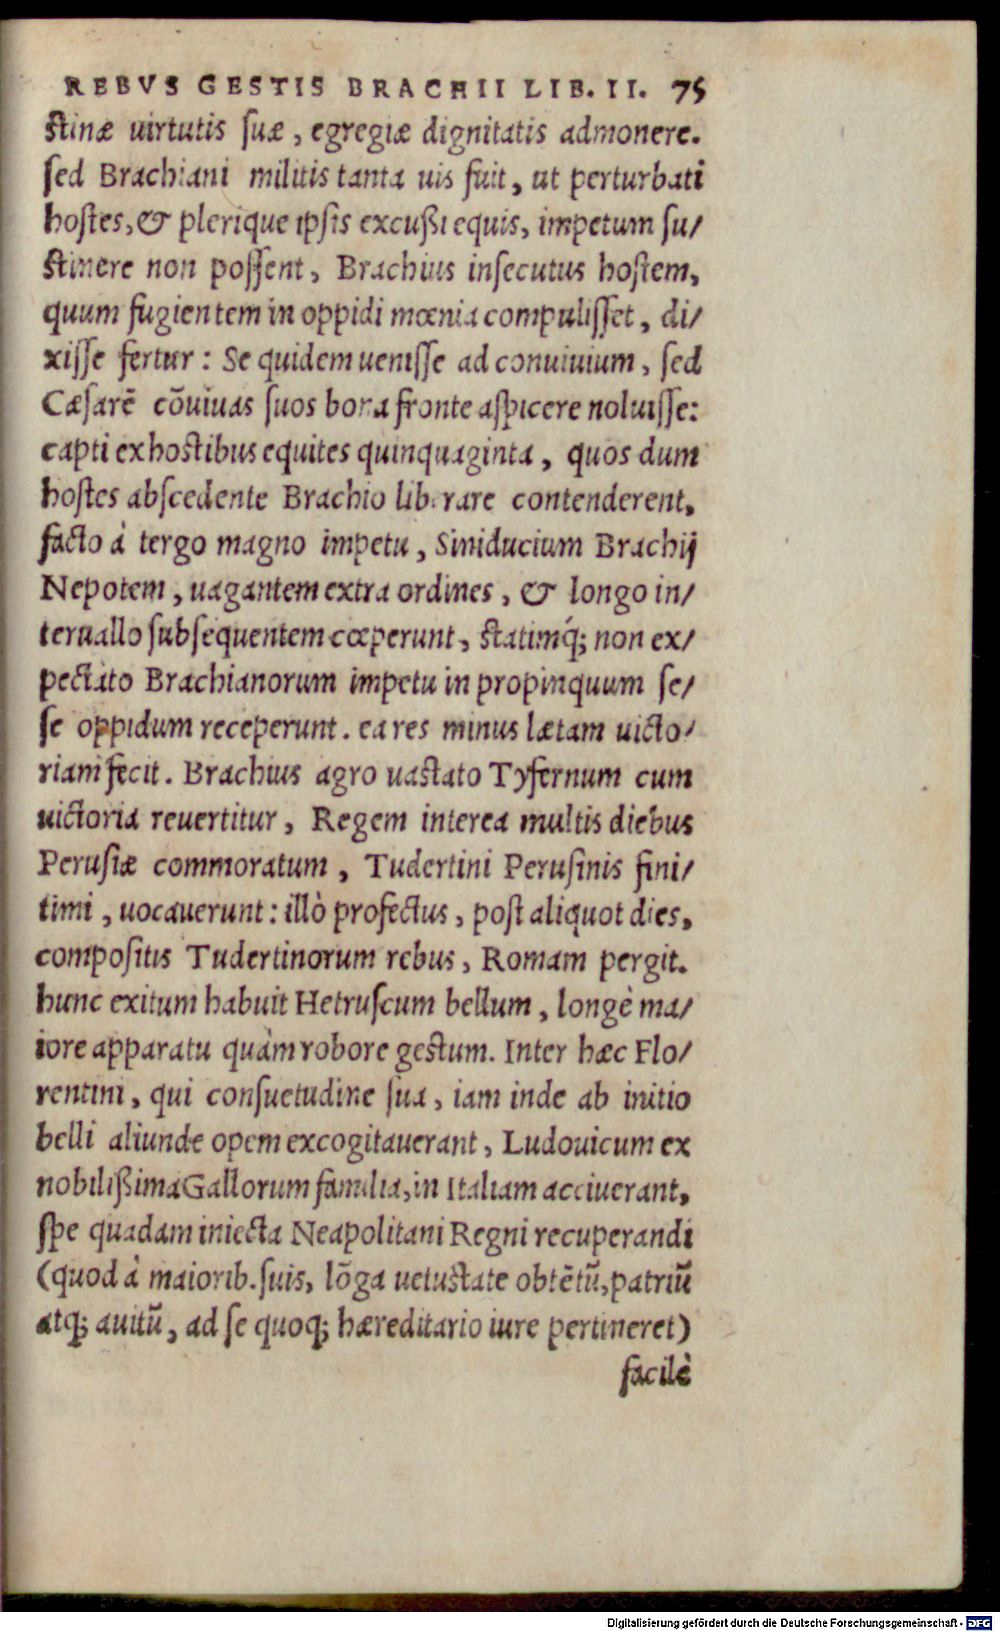 REBVS GESTIS BRACHII LIB. II. 75
stinæ uirtutis suæ, egregiæ dignitatis admonere.
sed Brachiani militis tanta uis fuit, ut perturbati
hostes, & plerique ipsis excußi equis, impetum su/
stinere non possent, Brachius insecutus hostem,
quum fugientem in oppidi mœnia compulisset, di/
xisse fertur: Se quidem uenisse ad conuiuium, sed
Cæsarē cōuiuas suos bona fronte aspicere noluisse:
capti ex hostibus equites quinquaginta, quos dum
hostes abscedente Brachio liberare contenderent,
facto à tergo magno impetu, Siniducium Brachij
Nepotem, uagantem extra ordines, & longo in/
teruallo subsequentem cœperunt, statimq́; non ex/
pectato Brachianorum impetu in propinquum se/
se oppidum receperunt. ea res minus lætam uicto/
riam fecit. Brachius agro uastato Tyfernum cum
uictoria reuertitur, Regem interea multis diebus
Perusiæ commoratum, Tudertini Perusinis fini/
timi, uocauerunt: illò profectus, post aliquot dies,
compositis Tudertinorum rebus, Romam pergit.
hunc exitum habuit Hetruscum bellum, longè ma/
iore apparatu quàm robore gestum. Inter hæc Flo/
rentini, qui consuetudine sua, iam inde ab initio
belli aliunde opem excogitauerant, Ludouicum ex
nobilißima Gallorum familia, in Italiam acciuerant,
spe quadam iniecta Neapolitani Regni recuperandi
(quod à maiorib. suis, lōga uetustate obtētū, patriū
atq; auitū, ad se quoq; hæreditario iure pertineret)
facilè
Digitalisierung gefördert durch die Deutsche Forschungsgemeinschaft - DFG